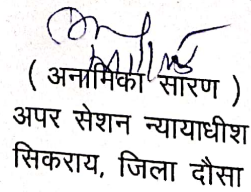 ( अनामिका सारण )
अपर सेशन न्यायाधीश
सिकराय, जिला दौसा